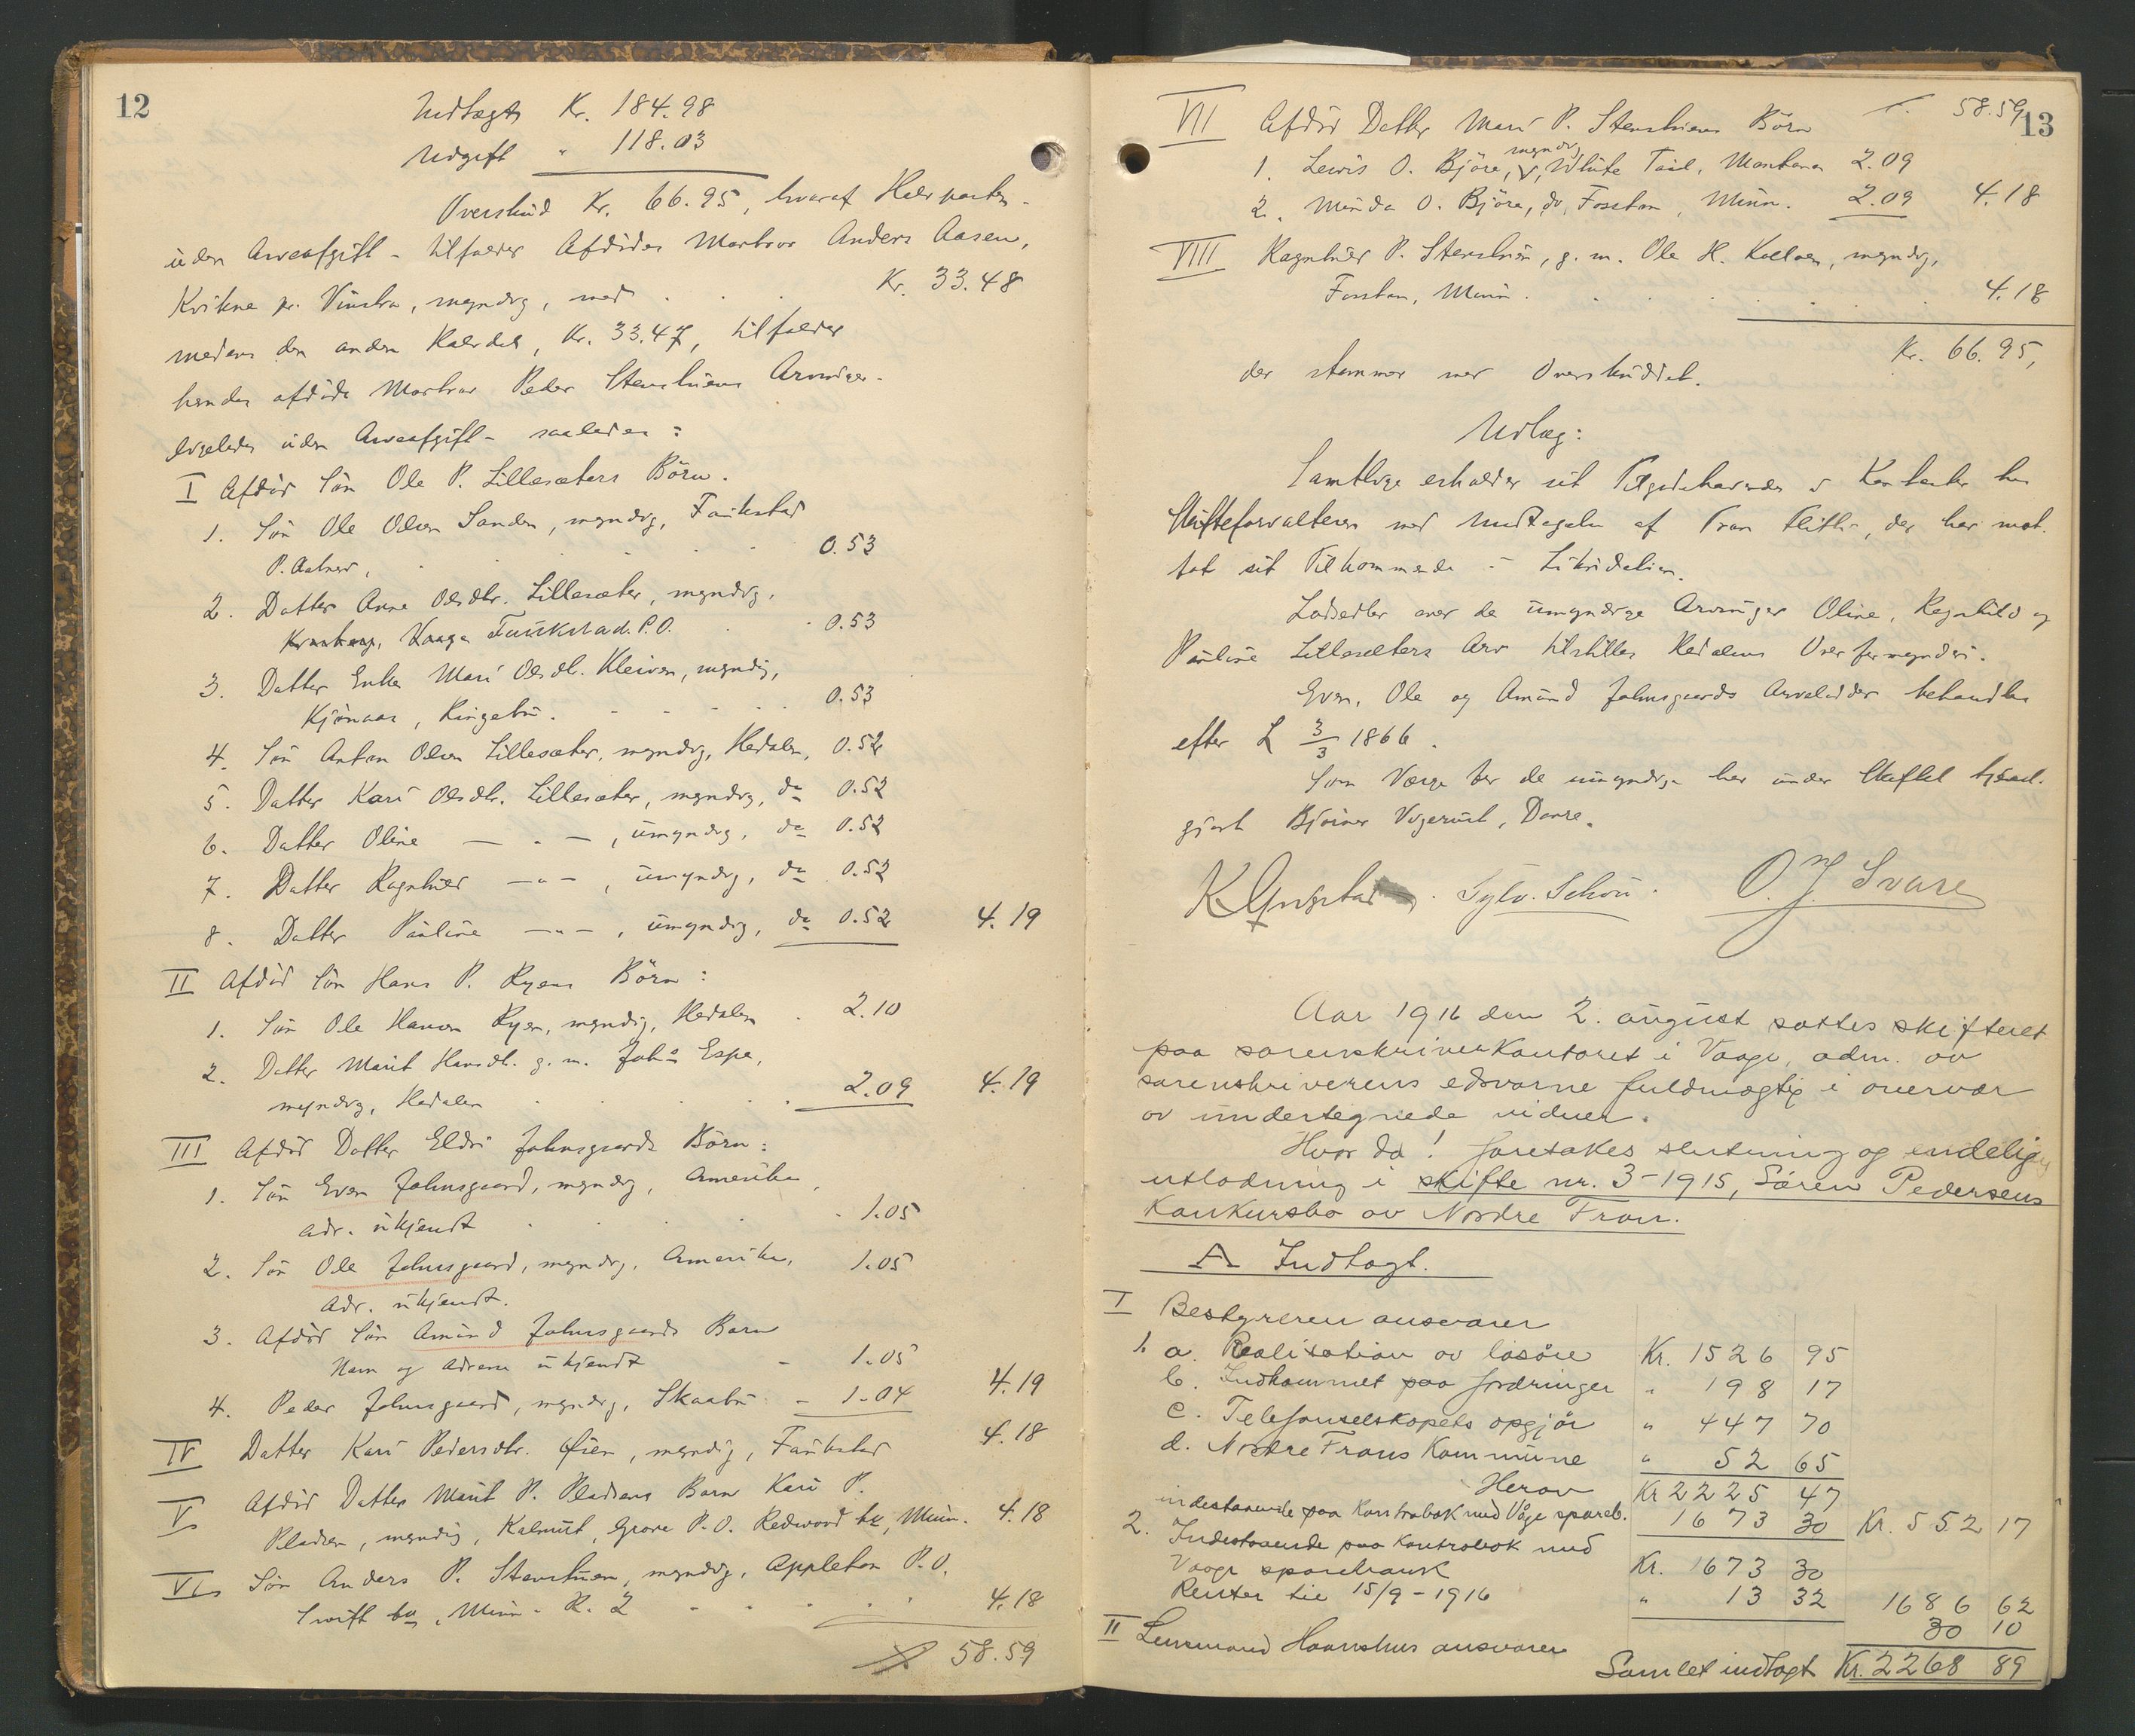 12
Indtægt Kr. 184.98
Udgift " 118.03
Overskud Kr. 66.95, hvoraf Halvparten -
uden Arveafgift - tilfalder Afdødes Morbror Anders Aasen,
Kvikne pr. Vinstra, myndig, med . . . Kr. 33.48
medens den anden Halvdel, Kr. 33.47, tilfalder
hendes afdøde Morbror Peder Stenstuens Arvinger -
ligeledes uden Arveafgift - saaledes:
I Afdød Søn Ole P. Lillesæters Børn.
1. Søn Ole Olsen Sanden, myndig, Faukstad
P. Aabneri, . . . . 0.53
2. Datter Anne Olsdtr. Lillesæter, myndig,
Kruke, Vaage Faukstad P.O. . . 0.53
3. Datter Enke Mari Olsdtr. Kleiven, myndig,
Kjönaas, Ringebu. - - - . . 0.53
4. Søn Anton Olsen Lillesæter, myndig, Hedalen, 0.52
5. Datter Kari Olsdtr. Lillesæter, myndig, do 0.52
6. Datter Oline — " — , umyndig, do 0.52
7. Datter Ragnhild — " — , umyndig, do 0.52
8. Datter Pauline — " — , umyndig, do 0.52 4.19
II Afdød Søn Hans P. Ryens Børn:
1. Søn Ole Hansen Ryen, myndig, Hedalen . 2.10
2. Datter Marit Hansdtr. g. m. Johs Espe,
myndig, Hedalen . . . . . 2.09 4.19
III Afdød Datter Eldri Jahnsgaards Børn:
1. Søn Even Jahnsgaard, myndig, Amerika,
adr. ukjendt . . . . . 1.05
2. Søn Ole Jahnsgaard, myndig, Amerika, 1.05
adr. ukjendt.
3. Afdød Søn Amund Jahnsgaards Barn
Navn og adresse ukjendt - 1.05
4. Peder Jahnsgaard, myndig, Skaabu - 1.04 4.19
IV Datter Kari Pedersdtr. Øien, myndig, Faukstad 4.18
V Afdød Datter Marit P. Pladsens Barn Kari P.
Pladsen, myndig, Kalmut, Grove P.O. Redwood Co, Minn. 4.18
VI Søn Anders P. Stenstuen, myndig, Appleton P.O.
Swift Co, Minn. R. 2 - - - . . 4.18
58.59
13
T. 58.59
VII Afdød Datter Mari P. Stenstuens Børn
1. Lewis O. Björe, myndig, White Tail, Montana 2.09
2. Minda O. Björe, do, Fosston, Minn. 2.09 4.18
VIII Ragnhild P. Stenstuen, g. m. Ole H. Kolloen, myndig,
Fosston, Minn. . . . . . . 4.18
Kr. 66.95,
der stemmer med Overskuddet.
Udlæg:
Samtlige erholder sit Tilgodehavende i Kontanter hos
Skifteforvalteren med Undtagelse af Fron Flitler, der har mot-
tat sit Tilkommende i Likvidation.
Lodsedler over de umyndige Arvinger Oline, Ragnhild og
Pauline Lillesæters Arv tilstilles Hedalens Overformynderi.
Even, Ole og Amund Jahnsgaards Arvelodder behandles
efter L 3/3 1866.
Som Værge for de umyndige har under Skiftet
gjort Björner Vigerust, Dovre.
Sylv. Schou. O. J. Svare
Aar 1916 den 2. august sattes skifteret
paa sorenskriverkontoret i Vaage, adm. av
sorenskriverens edsvorne fuldmægtig i overvær
av undertegnede vidner.
Hvor da! foretakes slutning og endelig
utlodning i skifte nr. 3-1915, Søren Pedersens
Konkursbo av Nordre Fron.
A Indtagt.
I Bestyreren ansvarer
1. a. Realisation av løsøre Kr. 1526 95
b. Indkommet paa fordringer " 198 17
c. Telefonselskapets opgjør " 447 70
d. Nordre Frons Kommune " 52 65
Herav Kr 2225 47
indestaaende paa Kontrabok med Våge spareb. 1673 30 Kr. 552 17
2. Indestaaende paa Kontrabok med
Vaage sparebank Kr. 1673 30
Renter til 15/9-1916 " 13 32 1686 62
II Lensmand Haanshus ansvarer 30 10
Samlet indtagt Kr. 2268 89